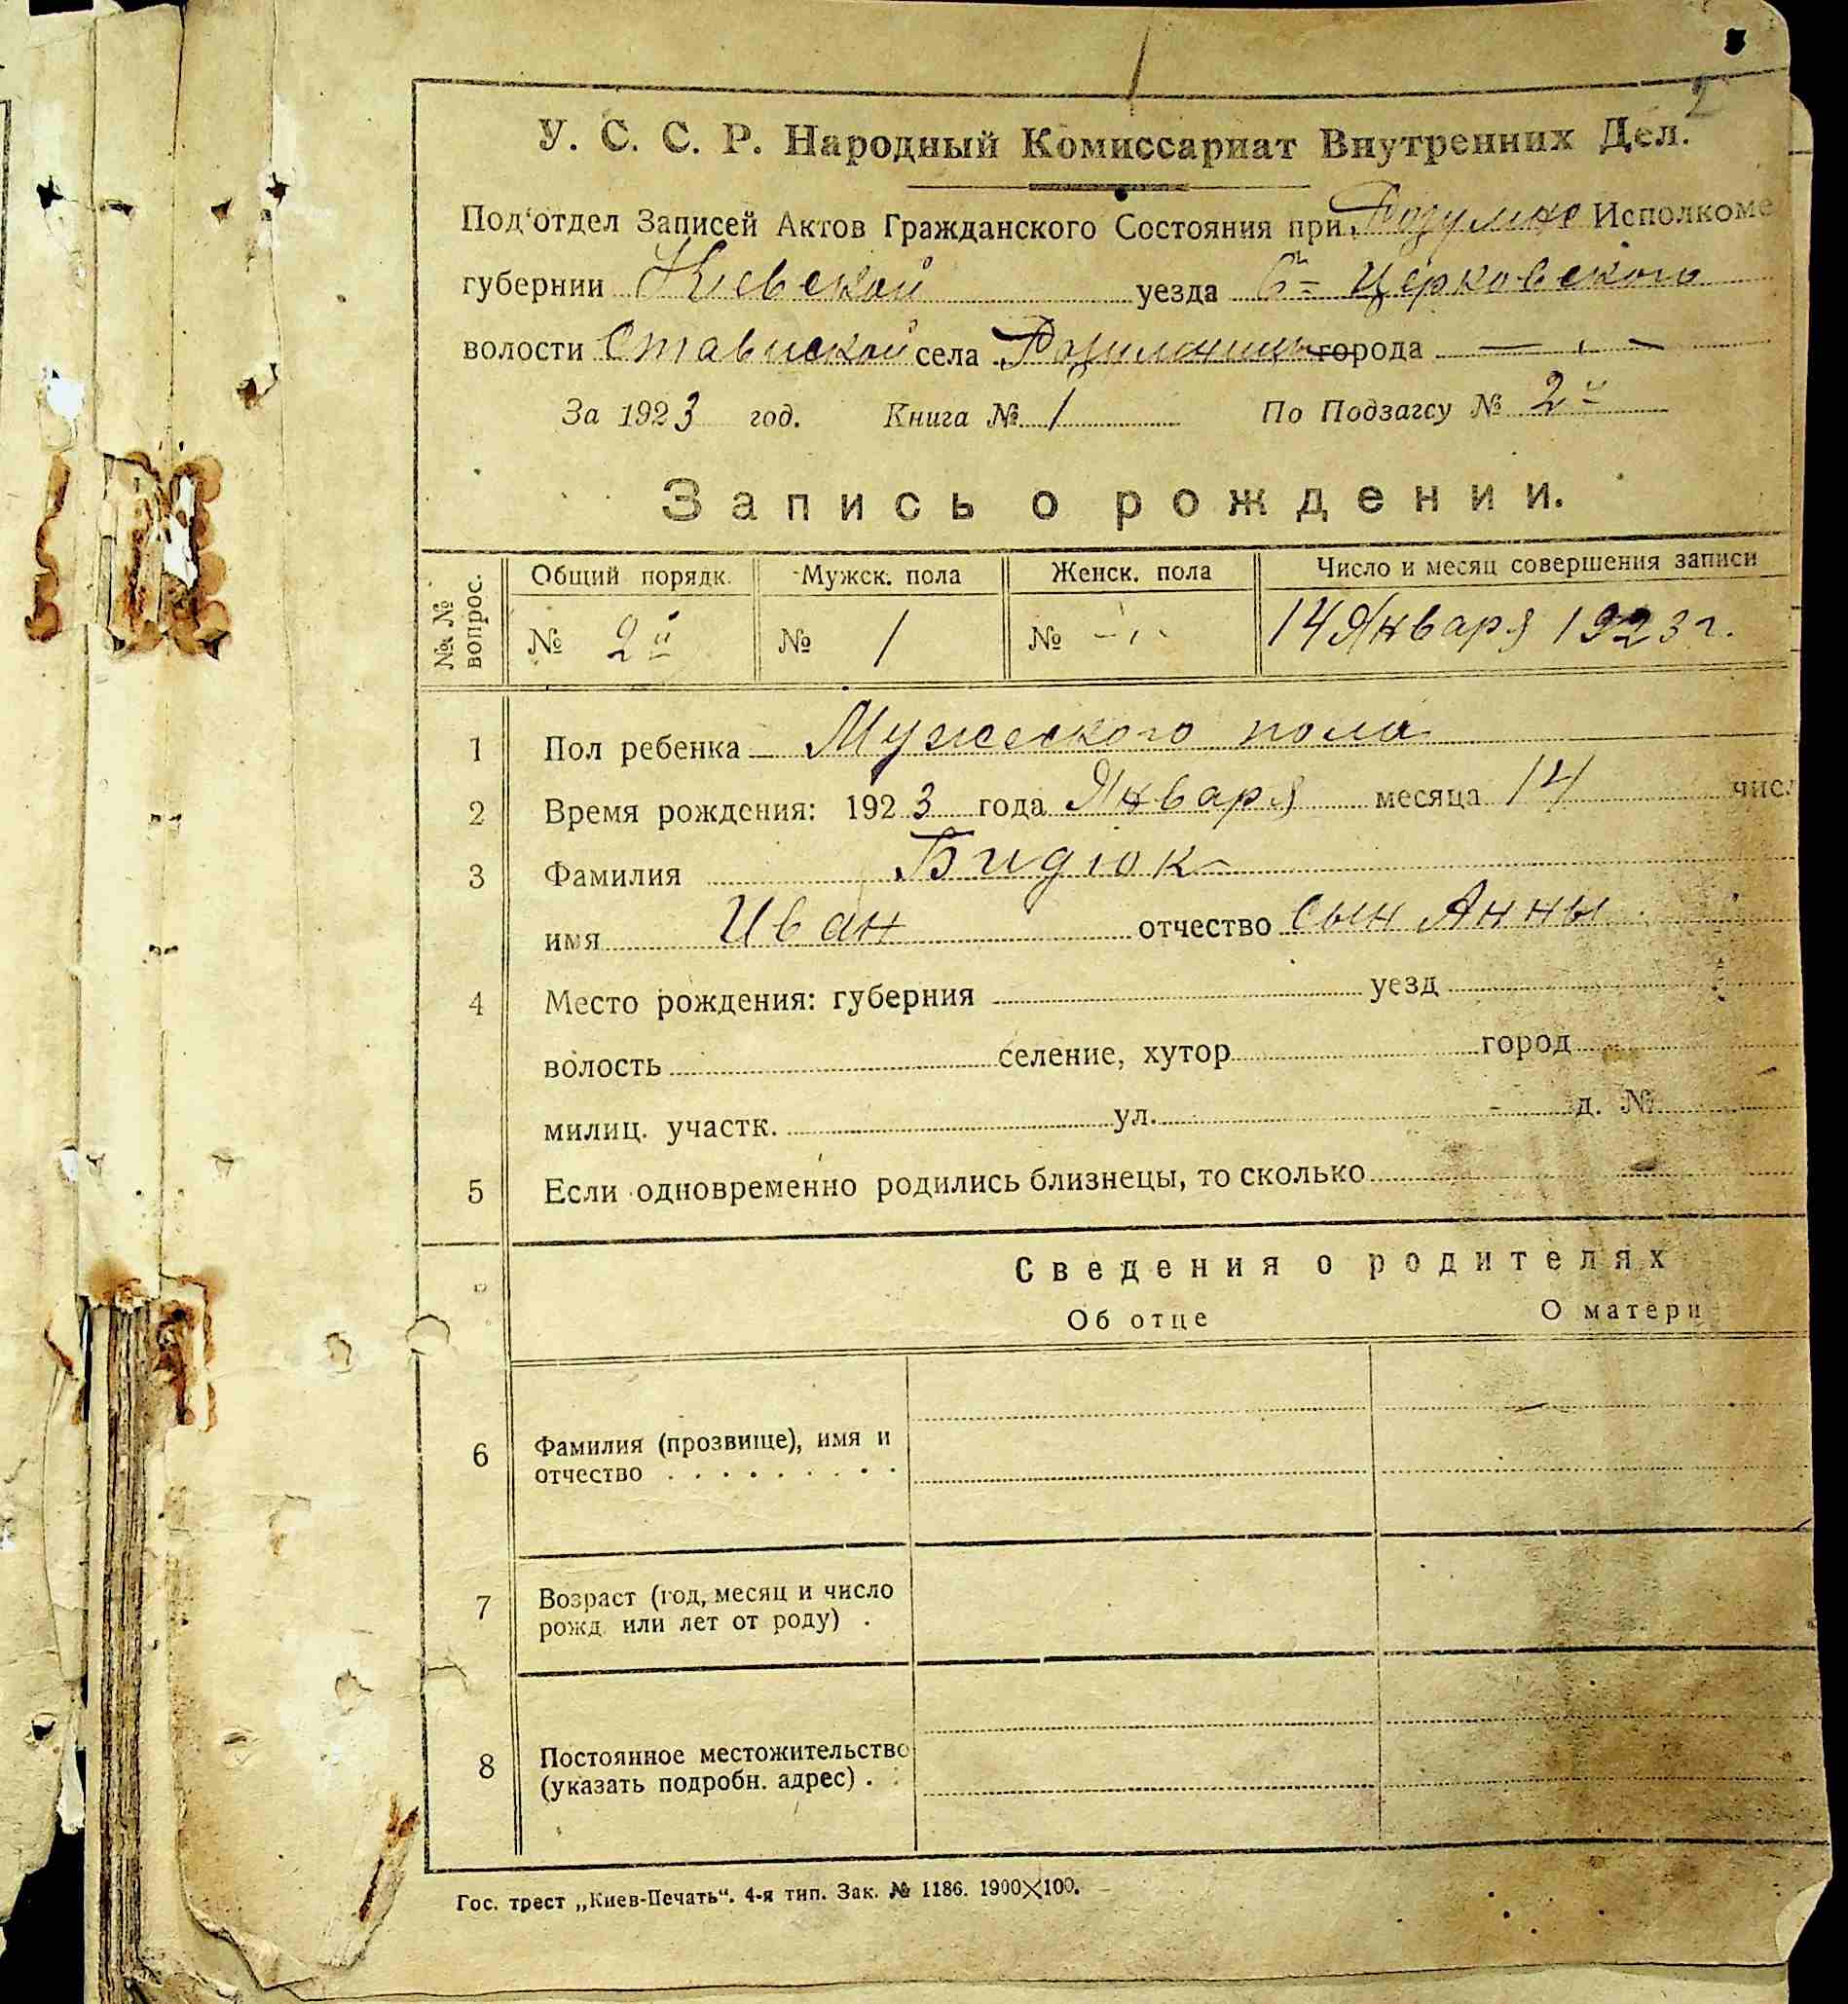 2
У. С. С. Р. Народный Комиссариат Внутренних Дел.
Под'отдел Записей Актов Гражданского Состояния при Исполкоме
губернии Киевской уезда Б= Церковского
волости Ставиской села города — , —
За 1923 год. Книга № 1 По Подзагсу № 2й
Запись о рождении.
№№ вопрос. Общий порядк. Мужск. пола Женск. пола Число и месяц совершения записи
№ 2й № 1 № - 14 Января 1923 г.
1 Пол ребенка Мужеского пола
2 Время рождения: 1923 года Января месяца 14 числ
3 Фамилия Бидюк
имя Иван отчество сын Анны
4 Место рождения: губерния уезд
волость селение, хутор город
милиц. участк. ул. д. №
5 Если одновременно родились близнецы, то сколько
Сведения о родителях
Об отце О матери
6 Фамилия (прозвище), имя и
отчество . . . . . . . . .
7 Возраст (год, месяц и число
рожд. или лет от роду) .
8 Постоянное местожительство
(указать подробн. адрес) . .
Гос. трест „Киев-Печать“. 4-я тип. Зак. № 1186. 1900×100.